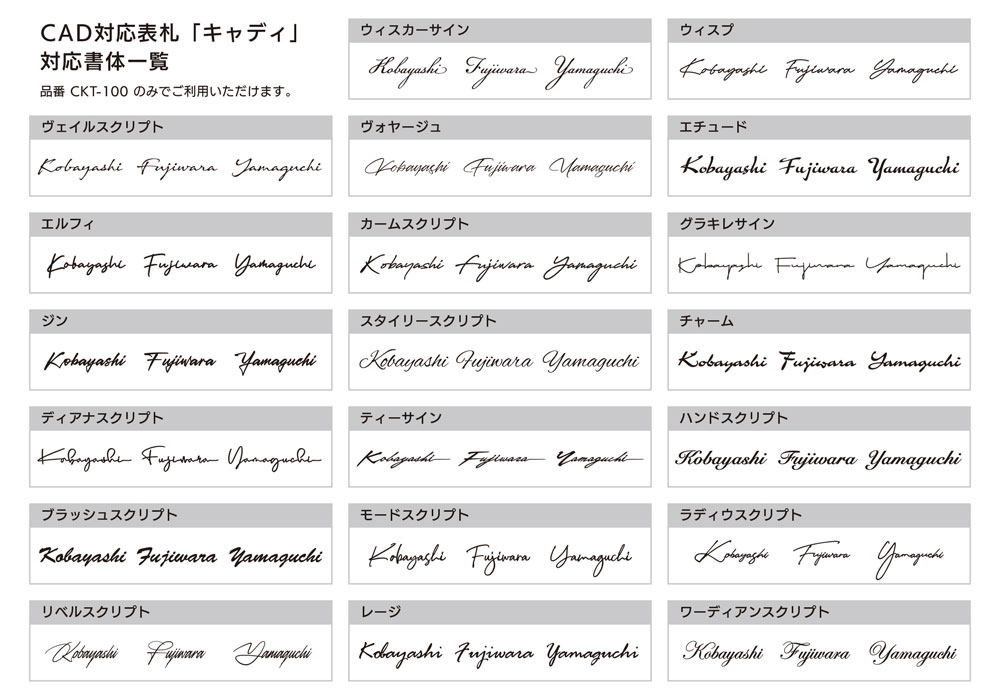 CAD対応表札「キャディ」
対応書体一覧
品番 CKT-100 のみでご利用いただけます。
ウィスカーサイン
Kobayashi Fujiwara Yamaguchi
ウィスプ
Kobayashi Fujiwara Yamaguchi
ヴェイルスクリプト
Kobayashi Fujiwara Yamaguchi
ヴォヤージュ
Kobayashi Fujiwara Yamaguchi
エチュード
Kobayashi Fujiwara Yamaguchi
エルフィ
Kobayashi Fujiwara Yamaguchi
カームスクリプト
Kobayashi Fujiwara Yamaguchi
グラキレサイン
Kobayashi Fujiwara Yamaguchi
ジン
Kobayashi Fujiwara Yamaguchi
スタイリースクリプト
Kobayashi Fujiwara Yamaguchi
チャーム
Kobayashi Fujiwara Yamaguchi
ディアナスクリプト
Kobayashi Fujiwara Yamaguchi
ティーサイン
Kobayashi Fujiwara Yamaguchi
ハンドスクリプト
Kobayashi Fujiwara Yamaguchi
ブラッシュスクリプト
Kobayashi Fujiwara Yamaguchi
モードスクリプト
Kobayashi Fujiwara Yamaguchi
ラディウスクリプト
Kobayashi Fujiwara Yamaguchi
リベルスクリプト
Kobayashi Fujiwara Yamaguchi
レージ
Kobayashi Fujiwara Yamaguchi
ワーディアンスクリプト
Kobayashi Fujiwara Yamaguchi